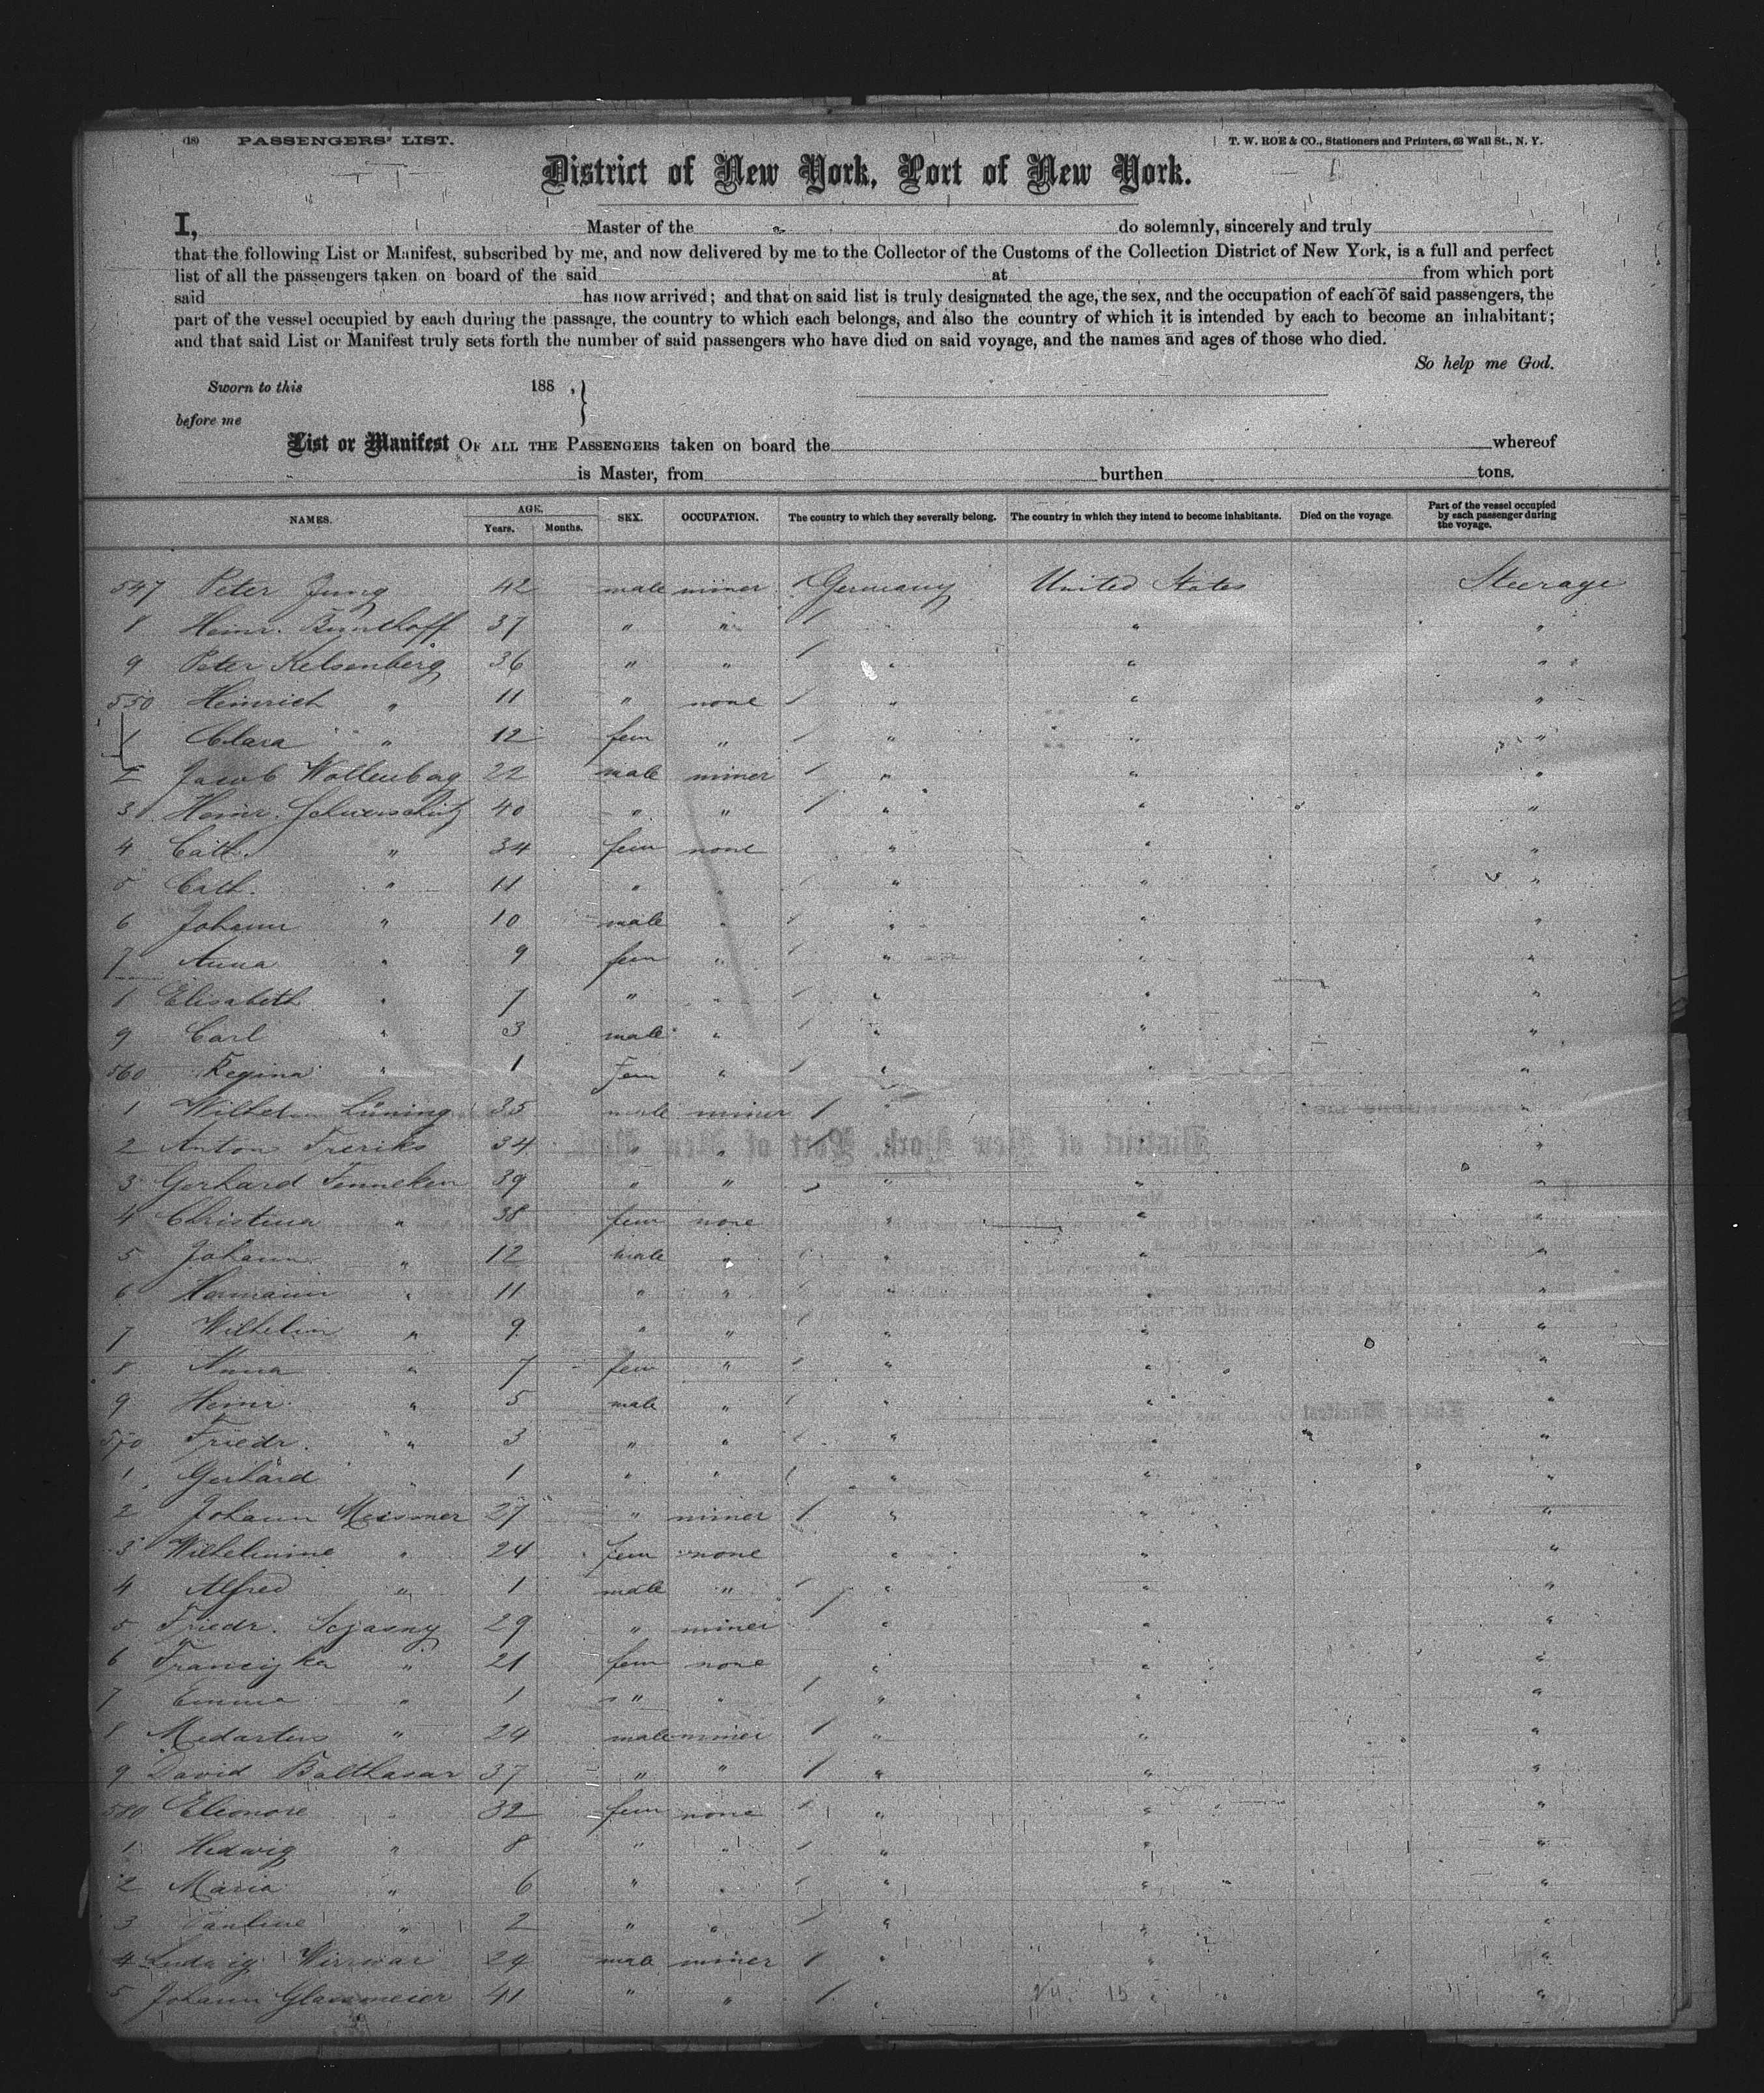 (18) PASSENGERS' LIST. T. W. ROE & CO., Stationers and Printers, 63 Wall St., N. Y.
District of New York, Port of New York.
I, Master of the do solemnly, sincerely and truly
that the following List or Manifest, subscribed by me, and now delivered by me to the Collector of the Customs of the Collection District of New York, is a full and perfect
list of all the passengers taken on board of the said at from which port
said has now arrived; and that on said list is truly designated the age, the sex, and the occupation of each of said passengers, the
part of the vessel occupied by each during the passage, the country to which each belongs, and also the country of which it is intended by each to become an inhabitant;
and that said List or Manifest truly sets forth the number of said passengers who have died on said voyage, and the names and ages of those who died.
So help me God.
Sworn to this 188 , }
before me
List or Manifest OF ALL THE PASSENGERS taken on board the whereof
is Master, from burthen tons.
NAMES. AGE. Years. Months. SEX. OCCUPATION. The country to which they severally belong. The country in which they intend to become inhabitants. Died on the voyage. Part of the vessel occupied by each passenger during the voyage.
547 Peter Jung 42 male miner 1 Germany United States Steerage
8 Heinr. 37 " " 1 " " "
9 Peter Kelsenberg 36 " " 1 " " "
550 Heinrich " 11 " none 1 " " "
1 Clara " 12 fem " 1 " " "
2 Jacob 22 male miner 1 " " "
3 Heinr. 40 " " 1 " " "
4 Cath. " 34 fem none " " "
5 Cath. " 11 " " 1 " " "
6 Johann " 10 male " 1 " " "
7 Anna " 9 fem " 1 " " "
8 Elisabeth " 7 " " 1 " " "
9 Carl " 3 male " 1 " " "
560 Regina " 1 fem " 1 " " "
1 Wilhelm Lüning 35 male miner 1 " " "
2 Anton Freriks 34 " " 1 " " "
3 Gerhard Tenneken 39 " " 1 " " "
4 Christina " 38 fem none " " "
5 Johann " 12 male " 1 " " "
6 Hermann " 11 " " 1 " " "
7 Wilhelm " 9 " " 1 " " "
8 Anna " 7 fem " 1 " " "
9 Heinr. " 5 male " 1 " " "
570 Friedr. " 3 " " 1 " " "
1 Gerhard " 1 " " 1 " " "
2 Johann Meissner 27 " miner 1 " " "
3 Wilhelmine " 24 fem none " " "
4 Alfred " 1 male " 1 " " "
5 Friedr. 29 " miner 1 " " "
6 Franciska " 21 fem none " " "
7 Emma " 1 " " 1 " " "
8 " 24 male miner 1 " " "
9 David Balthasar 37 " " 1 " " "
580 Eleonore " 32 fem none 1 " " "
1 Hedwig " 8 " " 1 " " "
2 Maria " 6 " " 1 " " "
3 Pauline " 2 " " 1 " " "
4 Ludwig 29 male miner 1 " " "
5 Johann Glasmeier 41 " " 1 " " "